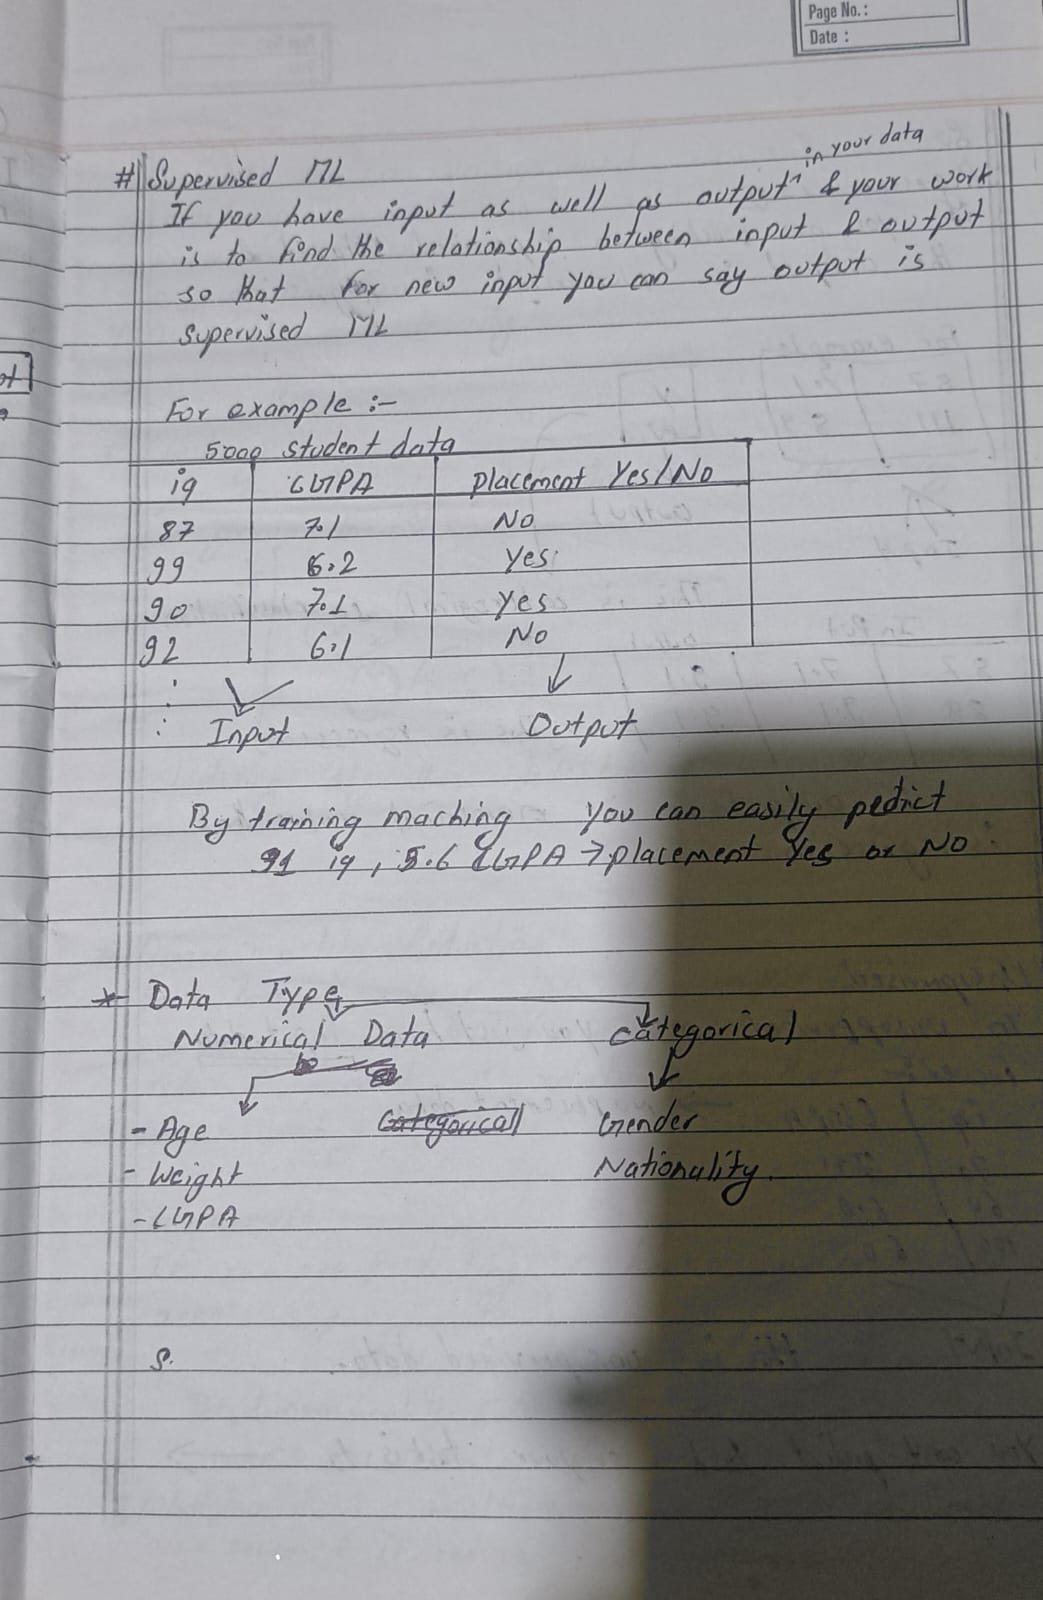 Page No. :
Date :
# Supervised ML
in your data
If you have input as well as output ^ & your work
is to find the relationship between input & output
so that for new input you can say output is
supervised ML
For example :-
5000 student data
iq CGPA placement Yes/No
87 7.1 No
99 6.2 Yes
90 7.1 Yes
92 6.1 No
Input Output
By training maching you can easily pedict
91 iq, 5.6 CGPA → placement Yes or No
* Data Type
Numerical Data Categorical
- Age Categorical Gender
- Weight Nationality
- CGPA
S.